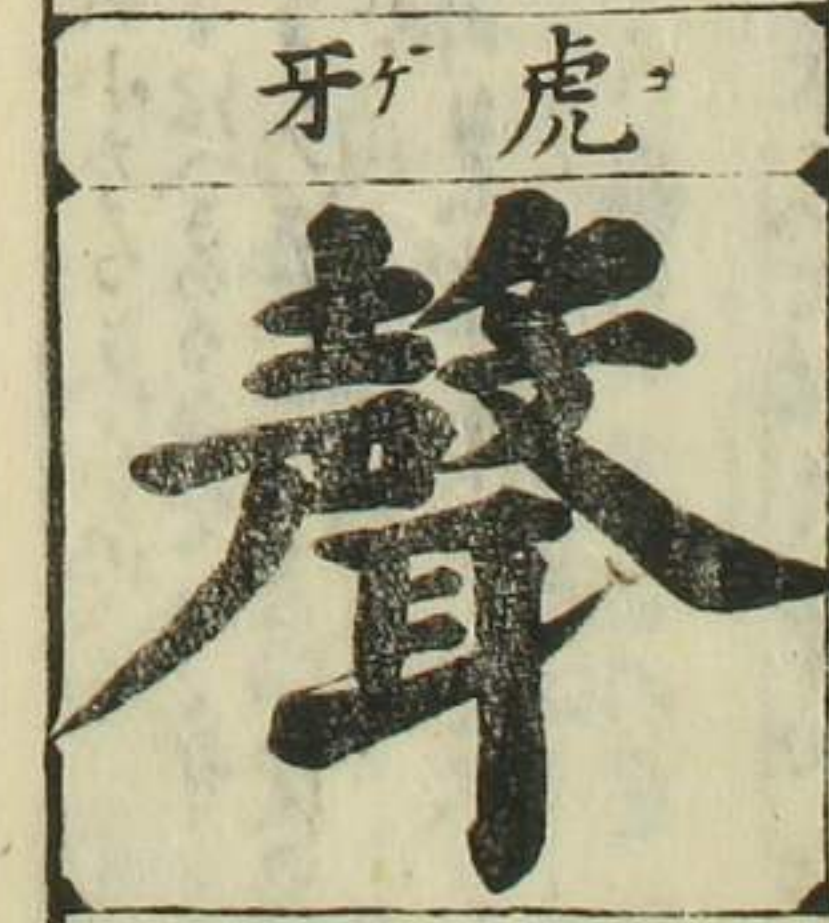 虎コ牙ゲ
聲